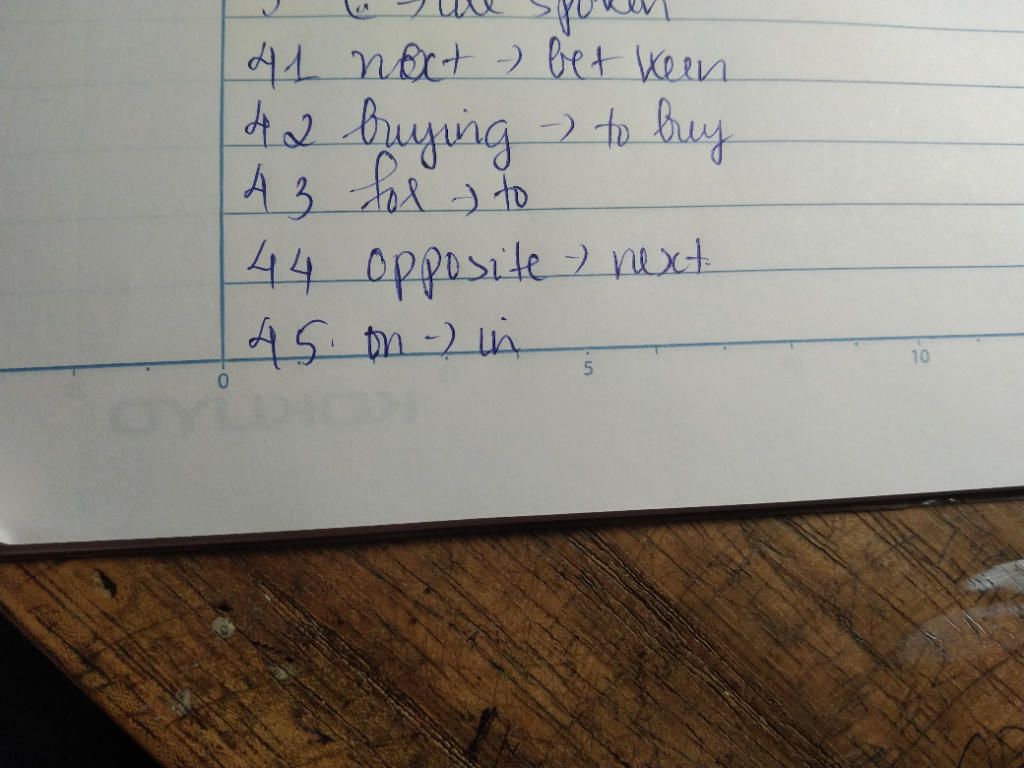 spoken
41 next → between
42 buying → to buy
43 for → to
44 opposite → next
45. on → in
0 5 10
KOKUYO